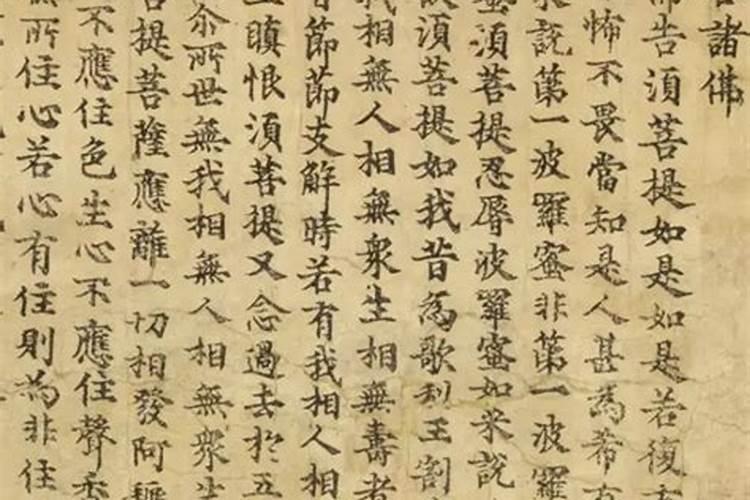 諸佛
佛告須菩提如是如是若復
怖不畏當知是人甚為希有
來說第一波羅蜜非第一波羅
蜜須菩提忍辱波羅蜜如来說
須菩提如我昔為歌利王割
我相無人相無衆生相無壽者
節節支解時若有我相人相
瞋恨須菩提又念過去於五
尒所世無我相無人相無衆生
菩提菩薩應離一切相發阿耨
不應住色生心不應住聲香
無所住心若心有住則為非住